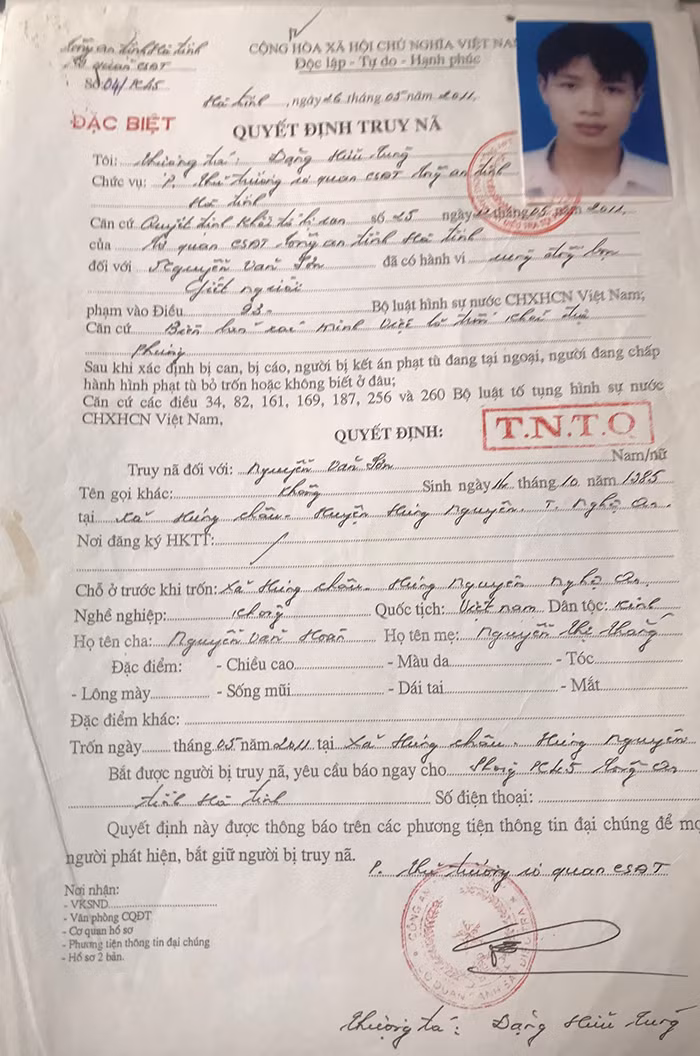 Công an tỉnh Hà Tĩnh
Cơ quan CSĐT
Số 04/PC45
CỘNG HÒA XÃ HỘI CHỦ NGHĨA VIỆT NAM
Độc lập - Tự do - Hạnh phúc
Hà Tĩnh, ngày 26 tháng 05 năm 2011.
ĐẶC BIỆT
QUYẾT ĐỊNH TRUY NÃ
Tôi: Thượng tá: Đặng Hữu Tùng
Chức vụ: P. Thủ trưởng cơ quan CSĐT Công an tỉnh
Hà Tĩnh
Căn cứ Quyết định Khởi tố bị can số 25 ngày 11 tháng 05 năm 2011,
của Cơ quan CSĐT Công an tỉnh Hà Tĩnh
đối với Nguyễn Văn Sơn đã có hành vi
Giết người
phạm vào Điều 93. Bộ luật hình sự nước CHXHCN Việt Nam;
Căn cứ Biên bản xác minh
Sau khi xác định bị can, bị cáo, người bị kết án phạt tù đang tại ngoại, người đang chấp
hành hình phạt tù bỏ trốn hoặc không biết ở đâu;
Căn cứ các điều 34, 82, 161, 169, 187, 256 và 260 Bộ luật tố tụng hình sự nước
CHXHCN Việt Nam,
QUYẾT ĐỊNH:
T.N.T.Q
Truy nã đối với: Nguyễn Văn Sơn Nam/nữ
Tên gọi khác: Không Sinh ngày 14 tháng 10 năm 1985
tại xã Hưng Châu - Huyện Hưng Nguyên. T. Nghệ An.
Nơi đăng ký HKTT:
Chỗ ở trước khi trốn: Xã Hưng Châu - Hưng Nguyên Nghệ An.
Nghề nghiệp: Không Quốc tịch: Việt nam Dân tộc: Kinh
Họ tên cha: Nguyễn Văn Hoan Họ tên mẹ: Nguyễn Thị Thắng
Đặc điểm: - Chiều cao - Màu da - Tóc
- Lông mày - Sống mũi - Dái tai - Mắt
Đặc điểm khác:
Trốn ngày tháng 05 năm 2011 tại Xã Hưng Châu. Hưng Nguyên
Bắt được người bị truy nã, yêu cầu báo ngay cho Phòng PC45 Công an
tỉnh Hà Tĩnh Số điện thoại:
Quyết định này được thông báo trên các phương tiện thông tin đại chúng để mọ
người phát hiện, bắt giữ người bị truy nã.
P. Thủ trưởng cơ quan CSĐT
Nơi nhận:
- VKSND
- Văn phòng CQĐT
- Cơ quan hồ sơ
- Phương tiện thông tin đại chúng
- Hồ sơ 2 bản.
Thượng tá: Đặng Hữu Tùng